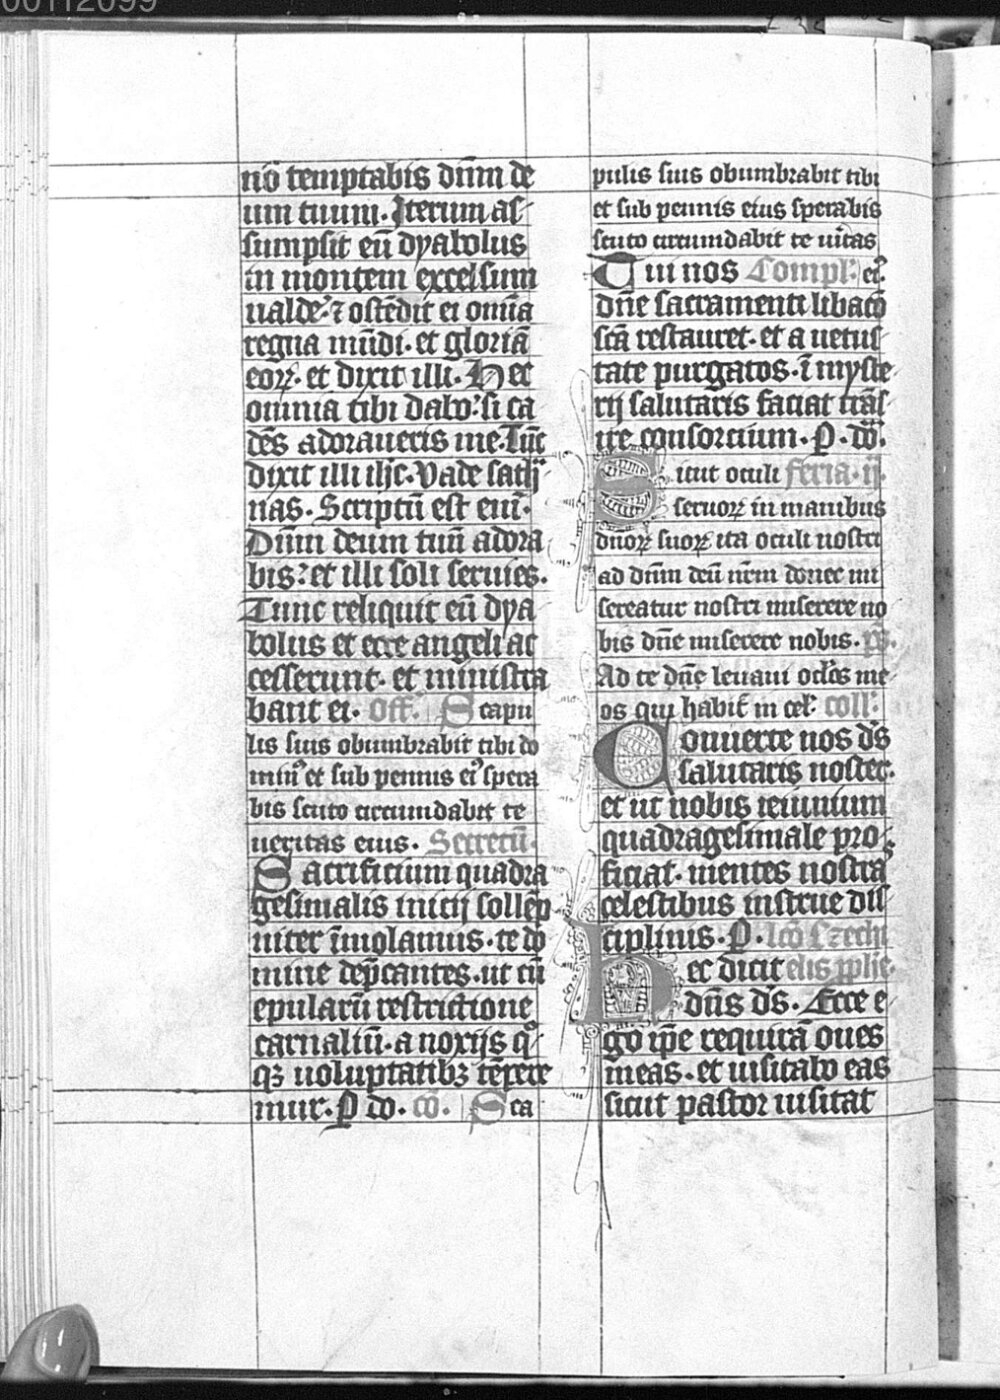 00112099
nō temptabis dn̄m de
um tuum. Iterum as
sumpsit eū dyabolus
in montem excelsum
ualde. ⁊ ostēdit ei omīa
regna mūdi. et gloriā
eoꝝ. et dixit illi. Hec
omnia tibi dabo. si ca
dēs adoraueris me. Tūc
dixit illi ihc. Vade sath̄
nas. Scriptū est eni̅.
Dn̄m deum tuū adora
bis. et illi soli seruies.
Tunc reliquit eū dya
bolus et ecce angeli ac
cesserunt. et ministra
bant ei. Off. Scapu
lis suis obumbrabit tibi do
minꝰ et sub pennis eiꝰ spera
bis scuto circumdabit te
ueritas eius. Secretū.
Sacrificium quadra
gesimalis inicij sollēp
niter īmolamus. te do
mine dep̄cantes. ut cū
epularū restrictione
carnaliū. a noxijs qͦ
qꝫ uoluptatibꝫ tēpere
mur. P do. cō. Sca
pulis suis obumbrabit tibi
et sub pennis eius sperabis
scuto circumdabit te uītas
Tui nos Compl. et̄
dn̄e sacramenti libacō
scā restauret. et a uetus
tate purgatos. ī myste
rij salutaris faciat trās
ire consortium. P. do̅.
Sicut oculi feria. ij.
seruoꝝ in manibus
dn̄oꝝ suoꝝ ita oculi nostri
ad dn̄m deū nr̄m donec mi
sereatur nostri miserere no
bis dn̄e miserere nobis. pͫs.
Ad te dn̄e leuaui oclōs me
os qui habit̄ in cel. coll.
Conuerte nos d̄s
salutaris noster.
et ut nobis ieiunium
quadragesimale pro
ficiat. mentes nostras
celestibus instrue dis
ciplinis. P. lcō Ezechi
Hec dicit elis pplie.
dn̄s d̄s. Ecce e
go ip̄e requirā oues
meas. et uisitabo eas
sicut pastor uisitat